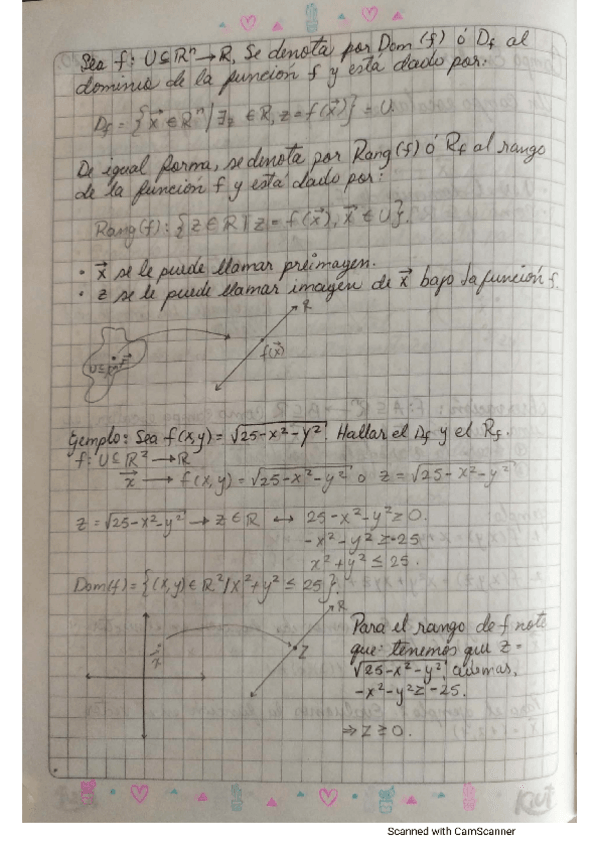 Sea f: U⊆ℝⁿ→ℝ, Se denota por Dom (f) ó Df al
dominio de la función f y está dado por:
Df = {x⃗ ∈ ℝⁿ/∃z ∈ ℝ, z = f(x⃗)} = U.
De igual forma, se denota por Rang(f) ó Rf al rango
de la función f y está dado por:
Rang(f): {z∈ℝ/z = f(x⃗), x⃗ ∈ U}.
• x⃗ se le puede llamar preimagen.
• z se le puede llamar imagen de x⃗ bajo la función f.
ℝ
U⊆ℝⁿ x⃗
f(x⃗)
Ejemplo: Sea f(x,y) = √25-x²-y². Hallar el Df y el Rf.
f: U⊆ℝ² → ℝ
x⃗ → f(x,y) = √25-x²-y² o z = √25-x²-y²
z = √25-x²-y² → z∈ℝ ↔ 25-x²-y² ≥ 0.
-x²-y² ≥ -25
x²+y² ≤ 25.
Dom(f) = {(x,y)∈ℝ²/x²+y² ≤ 25}.
ℝ
x⃗
z
Para el rango de f note
que: tenemos que z =
√25-x²-y², ademas,
-x²-y² ≥ -25.
⇒ z ≥ 0.
Kiut
Scanned with CamScanner